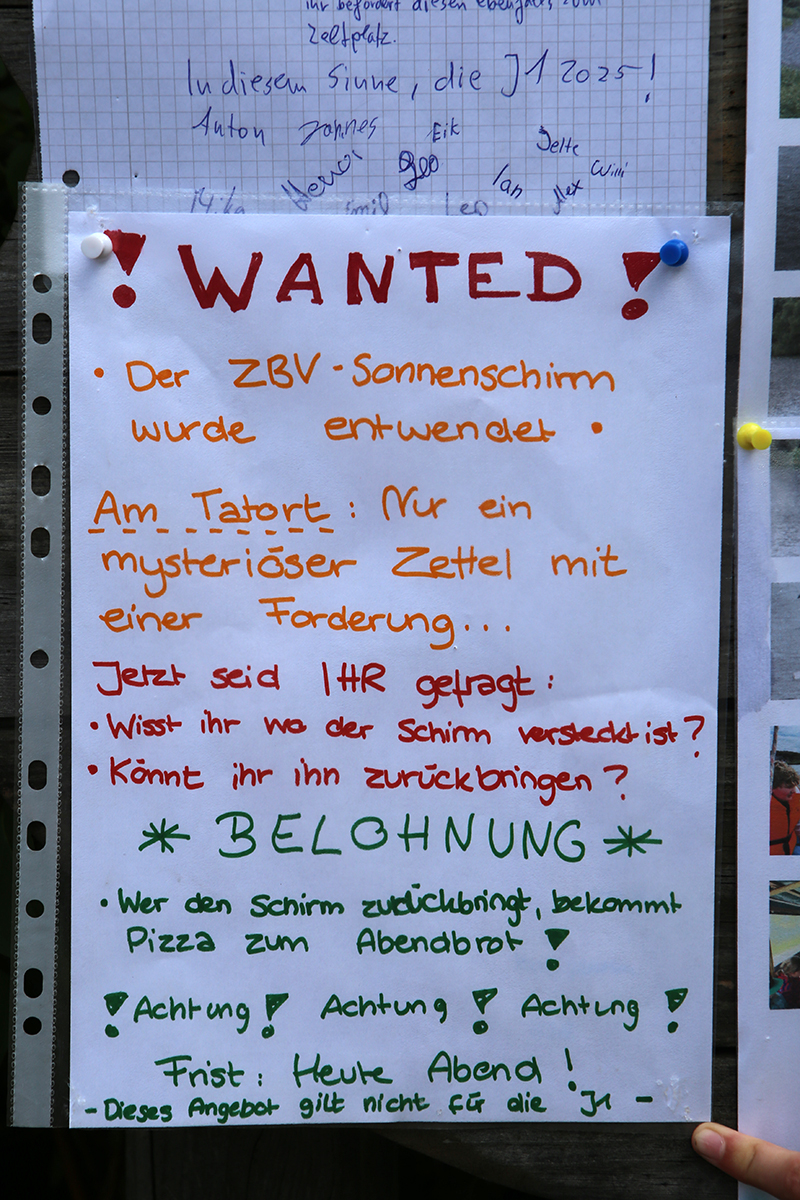 ihr befördert diesen ebenfalls zum
Zeltplatz.
In diesem Sinne, die J1 2025!
Anton Jannes Eik Jelte
Geo Ian Alex Willi
Mika Emil Leo
! WANTED !
• Der ZBV-Sonnenschirm
wurde entwendet •
Am Tatort: Nur ein
mysteriöser Zettel mit
einer Forderung...
Jetzt seid IHR gefragt:
• Wisst ihr wo der Schirm versteckt ist?
• Könnt ihr ihn zurückbringen?
* BELOHNUNG *
• Wer den Schirm zurückbringt, bekommt
Pizza zum Abendbrot!
! Achtung! Achtung! Achtung!
Frist: Heute Abend!
- Dieses Angebot gilt nicht für die J1 -